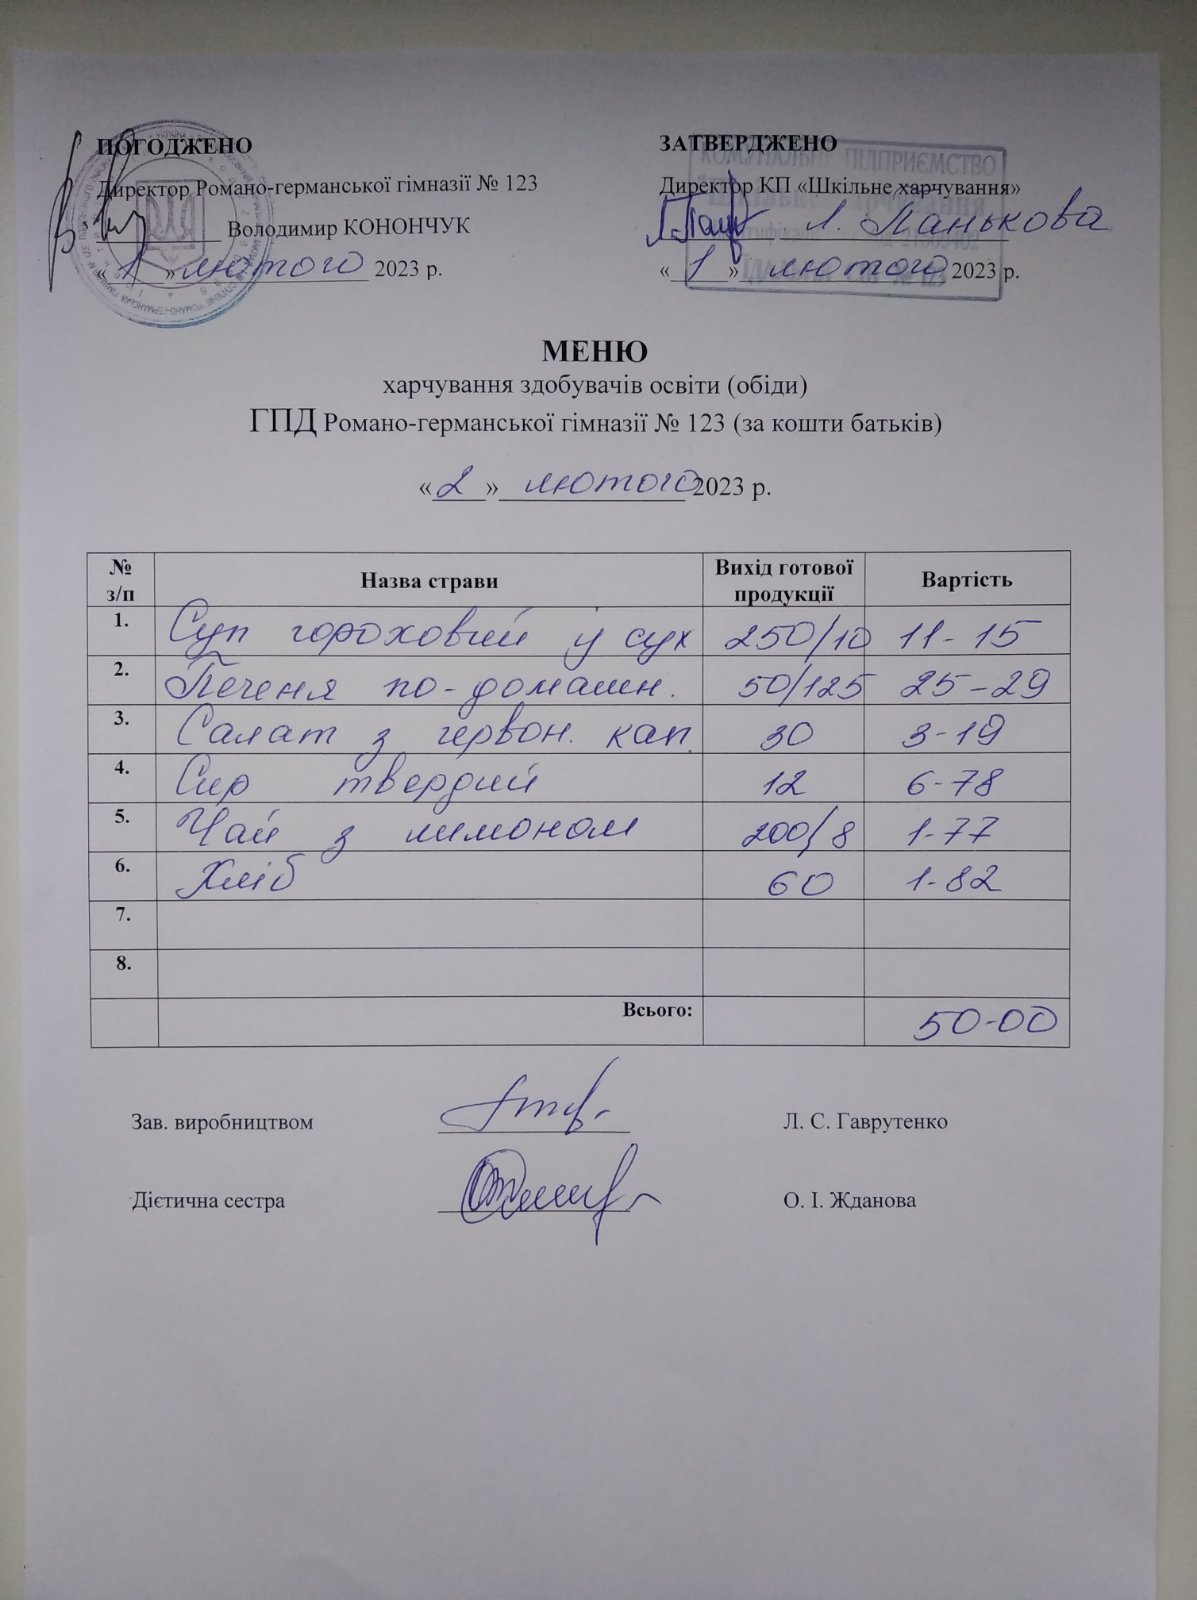 ПОГОДЖЕНО
Директор Романо-германської гімназії № 123
Володимир КОНОНЧУК
« 1 » лютого 2023 р.
ЗАТВЕРДЖЕНО
КОМУНАЛЬНЕ ПІДПРИЄМСТВО
Директор КП «Шкільне харчування»
Л. Панькова
« 1 » лютого 2023 р.
МЕНЮ
харчування здобувачів освіти (обіди)
ГПД Романо-германської гімназії № 123 (за кошти батьків)
« 2 » лютого 2023 р.
№ з/п Назва страви Вихід готової продукції Вартість
1. Суп гороховий у сух 250/10 11-15
2. Печеня по-домашн. 50/125 25-29
3. Салат з червон. кап. 30 3-19
4. Сир твердий 12 6-78
5. Чай з лимоном 200/8 1-77
6. Хліб 60 1-82
7.
8.
Всього: 50-00
Зав. виробництвом Л. С. Гаврутенко
Дієтична сестра О. І. Жданова